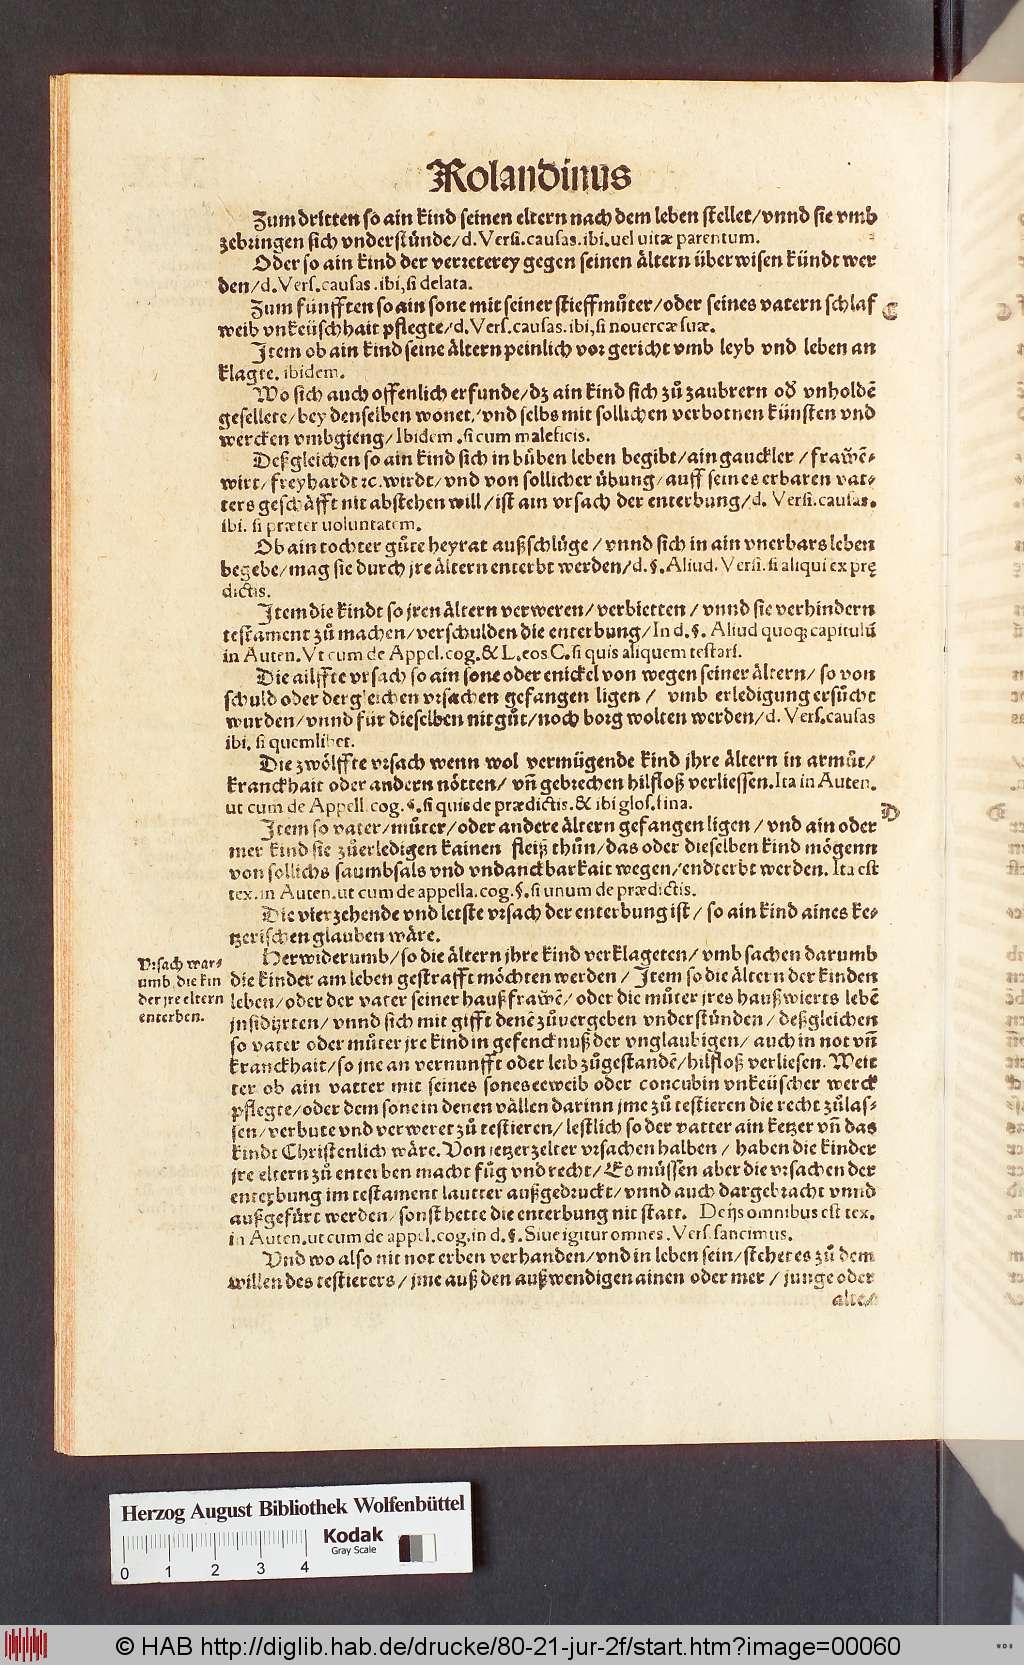 Rolandinus
Zum dritten so ain kind seinen eltern nach dem leben stellet/vnnd sie vmb
zebringen sich vnderstünde/d. Versi.causas.ibi.uel uitæ parentum.
Oder so ain kind der verreterey gegen seinen ältern überwisen kündt wer
den/d.Vers.causas.ibi,si delata.
Zum fünfften so ain sone mit seiner stieffmůter/oder seines vatern schlaf
C
weib vnkeüschhait pflegte/d.Vers.causas.ibi,si nouercæ suæ.
Item ob ain kind seine ältern peinlich vor gericht vmb leyb vnd leben an
klagte. ibidem.
Wo sich auch offenlich erfunde/dz ain kind sich zů zaubrern od̕ vnholdē
gesellete/bey denselben wonet/vnd selbs mit sollichen verbotnen künsten vnd
wercken vmbgieng/Ibidem.si cum maleficis.
Deßgleichen so ain kind sich in bůben leben begibt/ain gauckler/frawē-
wirt/freyhardt ꝛc. wirdt/vnd von sollicher übung/auff seines erbaren vat-
ters geschäfft nit abstehen will/ist ain vrsach der enterbung/d. Versi.causas.
ibi. si præter uoluntatem.
Ob ain tochter gůte heyrat außschlüge/vnnd sich in ain vnerbars leben
begebe/mag sie durch jre ältern enterbt werden/d.§.Aliud.Versi.si aliqui ex prę
dictis.
Item die kindt so jren ältern verweren/verbietten/vnnd sie verhindern
testament zů machen/verschulden die enterbung/In d.§. Aliud quoqꝫ capitulū
in Auten.Vt cum de Appel.cog.& L.eos C.si quis aliquem testari.
Die ailffte vrsach so ain sone oder enickel von wegen seiner ältern/so von
schuld oder dergleichen vrsachen gefangen ligen/ vmb erledigung ersůcht
wurden/vnnd für dieselben nit gůt/noch borg wolten werden/d. Vers.causas
ibi. si quemlibet.
Die zwölffte vrsach wenn wol vermügende kind jhre ältern in armůt/
kranckhait oder andern nötten/vn̄ gebrechen hilfloß verliessen.Ita in Auten.
ut cum de Appell.cog.§.si quis de prædictis.& ibi glos.fina.
Item so vater/můter/oder andere ältern gefangen ligen/vnd ain oder
D
mer kind sie zůerledigen kainen fleiß thůn/das oder dieselben kind mögenn
von sollichs saumbsals vnd vndanckbarkait wegen/endterbt werden. Ita est
tex.in Auten.ut cum de appella.cog.§.si unum de prædictis.
Die vierzehende vnd letste vrsach der enterbung ist/so ain kind aines ke-
tzerischen glauben wäre.
Herwiderumb/so die ältern jhre kind verklageten/vmb sachen darumb
Vrsach war-
umb die kin
der jre eltern
enterben.
die kinder am leben gestrafft möchten werden/Item so die ältern der kinden
leben/oder der vater seiner haußfrawē/oder die můter jres haußwierts lebē
jnsidijrten/vnnd sich mit gifft denē zůvergeben vnderstünden/deßgleichen
so vater oder můter jre kind in gefencknuß der vnglaubigen/auch in not vn̄
kranckhait/so jne an vernunfft oder leib zůgestandē/hilfloß verliesen. Weit
ter ob ain vatter mit seines sones eeweib oder concubin vnkeüscher werck
pflegte/oder dem sone in denen vällen darinn jme zů testieren die recht zůlas-
sen/verbute vnd verweret zů testieren/lestlich so der vatter ain ketzer vn̄ das
kindt Christenlich wäre. Von jetzerzelter vrsachen halben/haben die kinder
jre eltern zů enterben macht fůg vnd recht/Es müssen aber die vrsachen der
enterbung im testament lautter außgedruckt/vnnd auch dargebracht vnnd
außgefürt werden/sonst hette die enterbung nit statt. De ijs omnibus est tex.
in Auten.ut cum de appel.cog.in d.§.Siue igitur omnes.Vers.sancimus.
Vnd wo also nit not erben verhanden/vnd in leben sein/stehet es zů dem
willen des testierers/jme auß den außwendigen ainen oder mer/junge oder
alte/
Herzog August Bibliothek Wolfenbüttel
Kodak
Gray Scale
0 1 2 3 4
© HAB http://diglib.hab.de/drucke/80-21-jur-2f/start.htm?image=00060